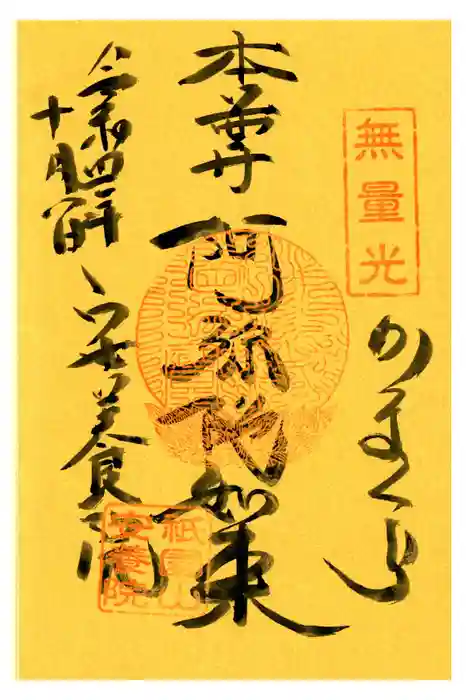 無量光
かまくら
本尊 阿弥陀如来
令和四年
十月一日
安養院
祇園山
安養院